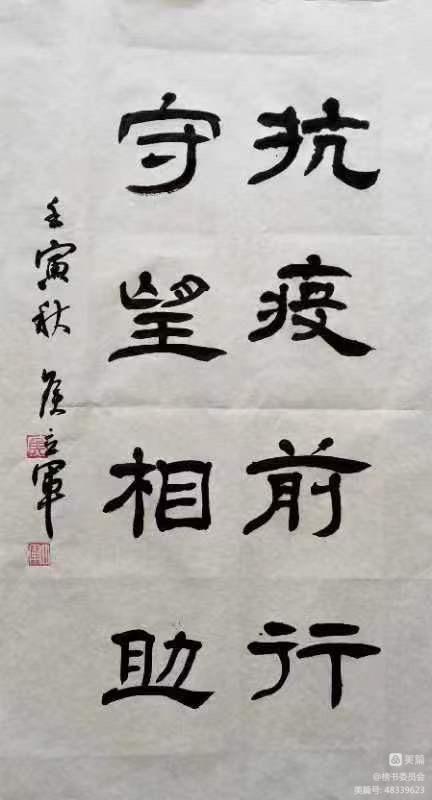 抗疫前行
守望相助
壬寅秋 侯立軍
美篇
@榜书委员会
美篇号: 48339623